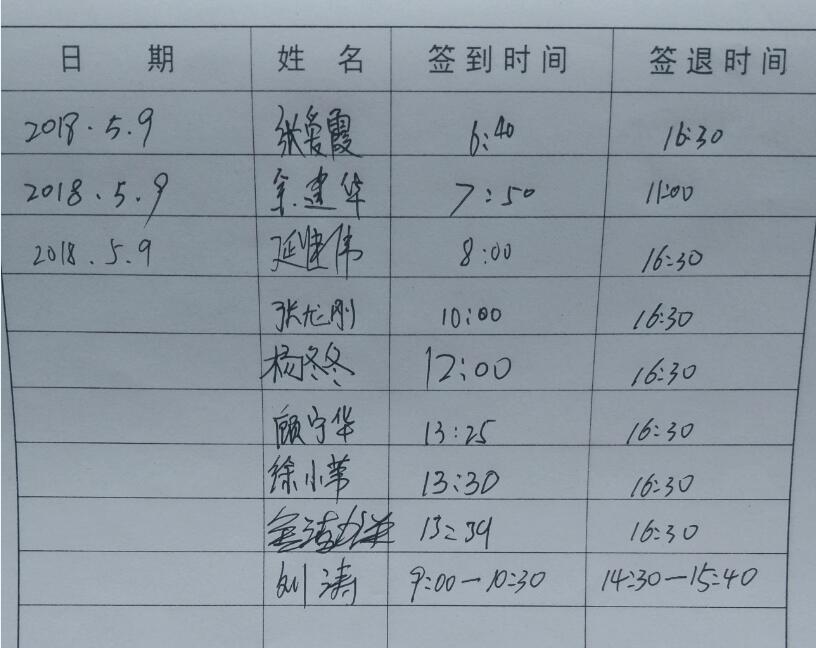 日 期 姓 名 签到时间 签退时间
2018.5.9 张爱霞 6:40 16:30
2018.5.9 余建华 7:50 11:00
2018.5.9 延建伟 8:00 16:30
张龙刚 10:00 16:30
杨冬冬 12:00 16:30
顾宁华 13:25 16:30
徐小苇 13:30 16:30
13:39 16:30
刘涛 9:00—10:30 14:30—15:40